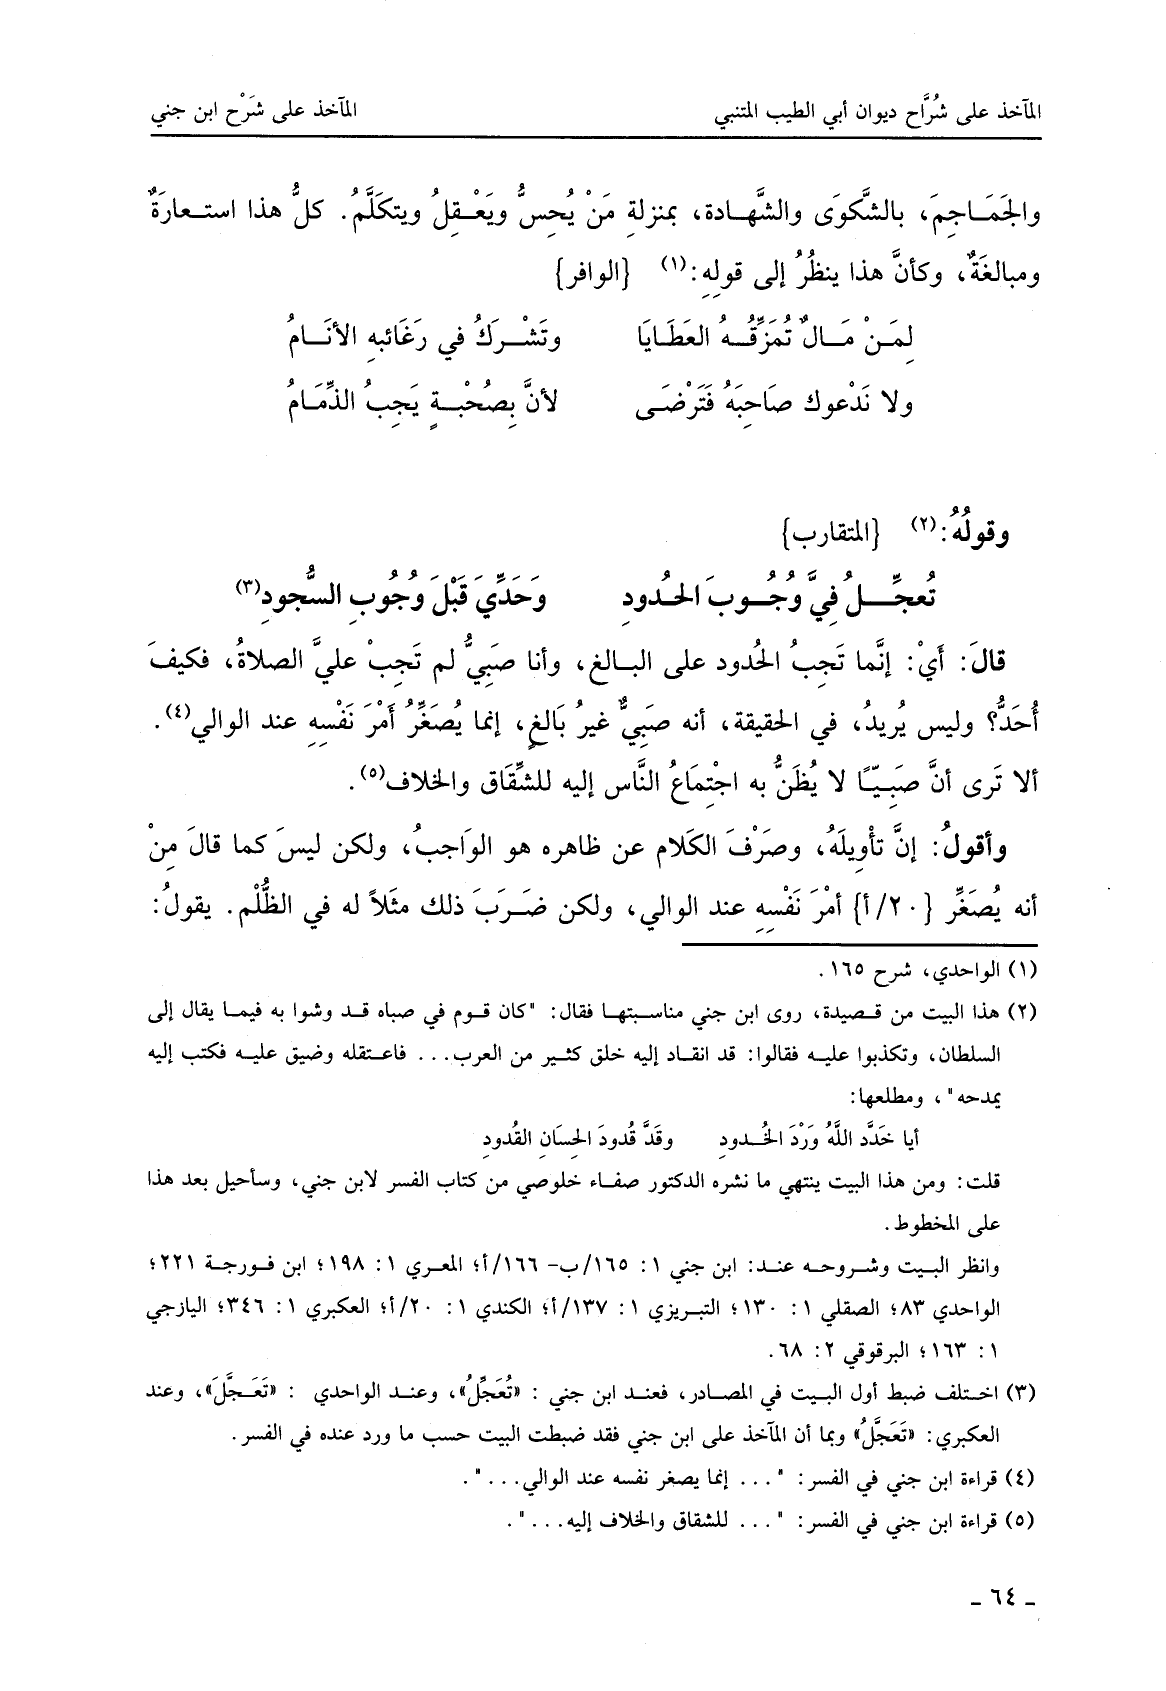 المآخذ على شُرَّاح ديوان أبي الطيب المتنبي
المآخذ على شَرْح ابن جني
والجَمَاجِمَ، بالشَّكوَى والشَّهادة، بمنزلةِ مَنْ يُحِسُّ ويَعْقِلُ ويتكَلَّمُ. كلُّ هذا استعارَةٌ
ومبالغَةٌ، وكأنَّ هذا ينظُرُ إلى قولِهِ:(١) {الوافر}
لِمَنْ مَالٌ تُمَزِّقُهُ العَطَايَا وتَشْرَكُ في رَغَائبِهِ الأنَامُ
ولا نَدْعوك صَاحِبَهُ فَتَرْضَى لأنَّ بِصُحْبَةٍ يَجِبُ الذِّمَامُ
وقولُهُ:(٢) {المتقارب}
تُعجِّلُ فِيَّ وُجُوبَ الحُدودِ وَحَدِّيَ قَبْلَ وُجُوبِ السُّجودِ(٣)
قالَ: أَيْ: إنَّما تَجِبُ الحُدود على البالغ، وأنا صَبِيٌّ لم تَجِبْ عليَّ الصلاةُ، فكيفَ
أُحَدُّ؟ وليس يُريدُ، في الحقيقة، أنه صَبِيٌّ غيرُ بَالغٍ، إنما يُصَغِّرُ أَمْرَ نَفْسِهِ عند الوالي(٤).
ألا تَرى أنَّ صَبِيّـًا لا يُظَنُّ به اجْتِمَاعُ النَّاس إليه للشِّقَاق والخلاف(٥).
وأقولُ: إنَّ تأْوِيلَهُ، وصَرْفَ الكَلام عن ظاهره هو الوَاجبُ، ولكن ليسَ كما قالَ مِنْ
أنه يُصَغِّر {٢٠/أ} أمْرَ نَفْسِهِ عند الوالي، ولكن ضَرَبَ ذلك مثَلاً له في الظُّلْم. يقولُ:
(١) الواحدي، شرح ١٦٥.
(٢) هذا البيت من قصيدة، روى ابن جني مناسبتها فقال: "كان قوم في صباه قد وشوا به فيما يقال إلى
السلطان، وتكذبوا عليه فقالوا: قد انقاد إليه خلق كثير من العرب... فاعتقله وضيق عليه فكتب إليه
يمدحه"، ومطلعها:
أيا خَدَّد اللَّهُ وَرْدَ الخُدودِ وقَدَّ قُدودَ الحِسَانِ القُدودِ
قلت: ومن هذا البيت ينتهي ما نشره الدكتور صفاء خلوصي من كتاب الفسر لابن جني، وسأحيل بعد هذا
على المخطوط.
وانظر البيت وشروحه عند: ابن جني ١: ١٦٥/ب- ١٦٦/أ؛ المعري ١: ١٩٨؛ ابن فورجة ٢٢١؛
الواحدي ٨٣؛ الصقلي ١: ١٣٠؛ التبريزي ١: ١٣٧/أ؛ الكندي ١: ٢٠/أ؛ العكبري ١: ٣٤٦؛ اليازجي
١: ١٦٣؛ البرقوقي ٢: ٦٨.
(٣) اختلف ضبط أول البيت في المصادر، فعند ابن جني : «تُعَجِّلُ»، وعند الواحدي : «تَعَجَّلَ»، وعند
العكبري: «تَعَجَّلُ» وبما أن المآخذ على ابن جني فقد ضبطت البيت حسب ما ورد عنده في الفسر.
(٤) قراءة ابن جني في الفسر: "... إنما يصغر نفسه عند الوالي...".
(٥) قراءة ابن جني في الفسر: "... للشقاق والخلاف إليه...".
ـ ٦٤ ـ